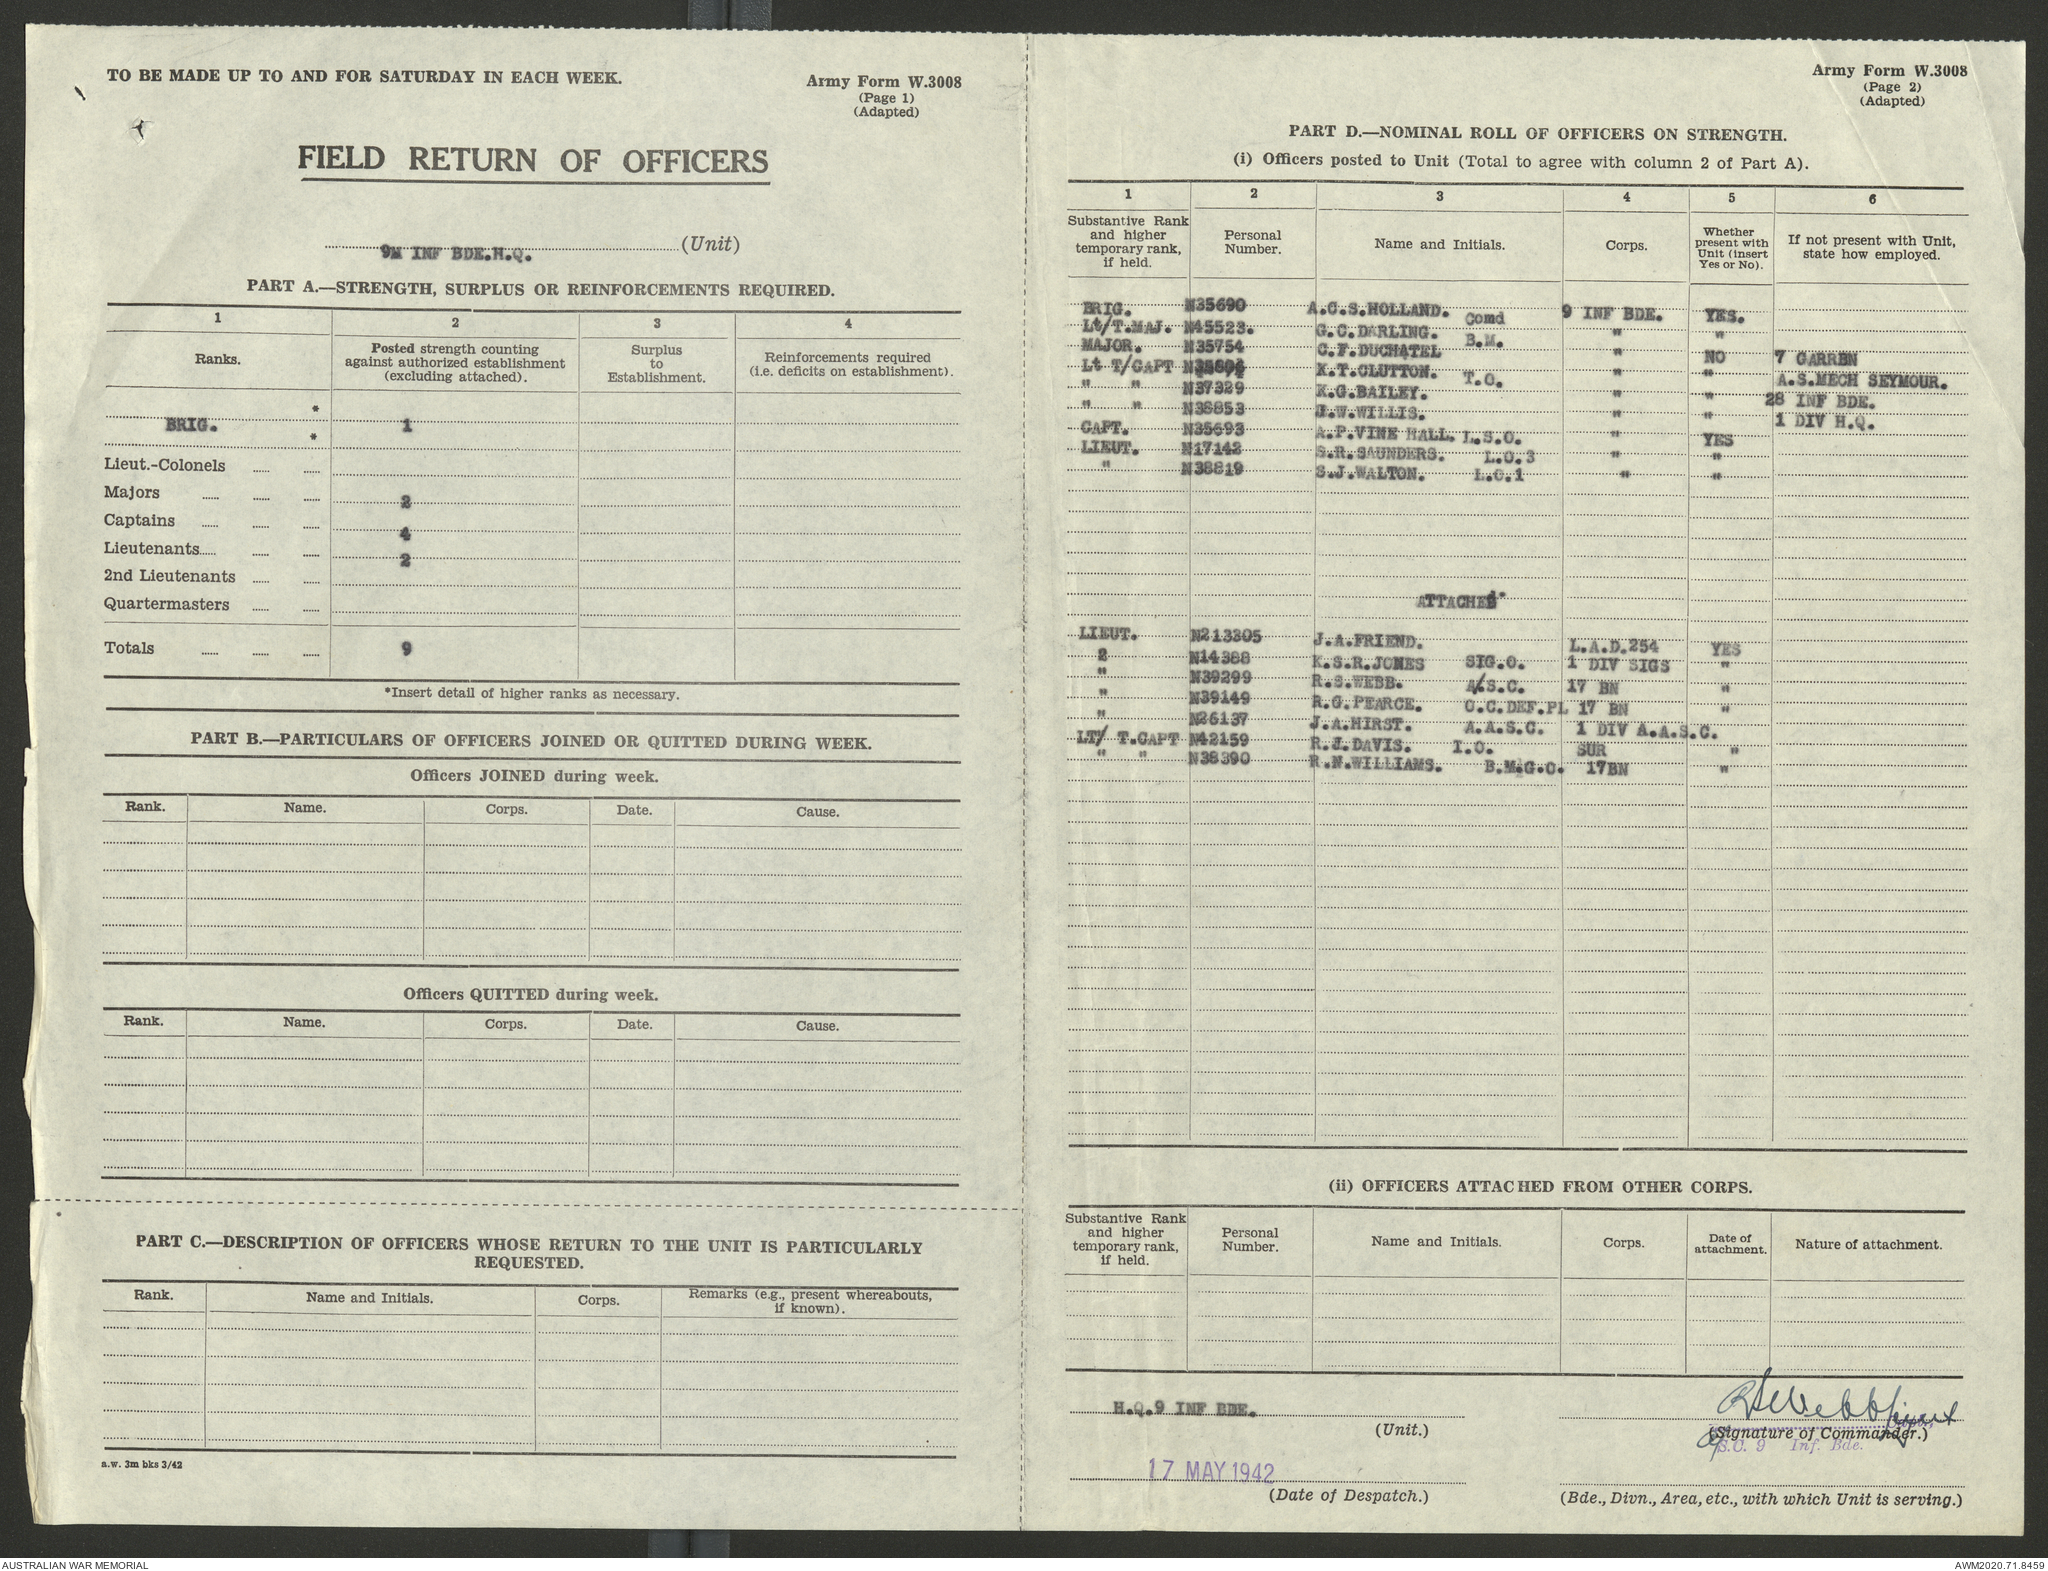 TO BE MADE UP TO AND FOR SATURDAY IN EACH WEEK.
Army Form W.3008
(Page 1)
(Adapted)
FIELD RETURN OF OFFICERS
9M INF BDE.H.Q. (Unit)
PART A.—STRENGTH, SURPLUS OR REINFORCEMENTS REQUIRED.
1 2 3 4
Ranks. Posted strength counting against authorized establishment (excluding attached). Surplus to Establishment. Reinforcements required (i.e. deficits on establishment).
*
BRIG. 1
*
Lieut.-Colonels
Majors 2
Captains 4
Lieutenants 2
2nd Lieutenants
Quartermasters
Totals 9
*Insert detail of higher ranks as necessary.
PART B.—PARTICULARS OF OFFICERS JOINED OR QUITTED DURING WEEK.
Officers JOINED during week.
Rank. Name. Corps. Date. Cause.
Officers QUITTED during week.
Rank. Name. Corps. Date. Cause.
PART C.—DESCRIPTION OF OFFICERS WHOSE RETURN TO THE UNIT IS PARTICULARLY
REQUESTED.
Rank. Name and Initials. Corps. Remarks (e.g., present whereabouts, if known).
a.w. 3m bks 3/42
Army Form W.3008
(Page 2)
(Adapted)
PART D.—NOMINAL ROLL OF OFFICERS ON STRENGTH.
(i) Officers posted to Unit (Total to agree with column 2 of Part A).
1 2 3 4 5 6
Substantive Rank and higher temporary rank, if held. Personal Number. Name and Initials. Corps. Whether present with Unit (insert Yes or No). If not present with Unit, state how employed.
BRIG. N35690 A.C.S.HOLLAND. Comd 9 INF BDE. YES.
Lt/T.MAJ. N45523. G.C.DARLING. B.M. " "
MAJOR. N35754 C.F.DUCHATEL " NO 7 GARRBN
Lt T/CAPT K.T.CLUTTON. T.O. " " A.S.MECH SEYMOUR.
" " N37329 K.G.BAILEY. " " 28 INF BDE.
" " N38853 J.W.WILLIS. " " 1 DIV H.Q.
CAPT. N35693 A.P.VINE HALL. L.S.O. " YES
LIEUT. N17142 S.R.SAUNDERS. L.O.3 " "
" N38819 S.J.WALTON. L.O.1 " "
ATTACHED.
LIEUT. N213305 J.A.FRIEND. L.A.D.254 YES
2 N14388 K.S.R.JONES SIG.O. 1 DIV SIGS "
" N39299 R.S.WEBB. A/S.C. 17 BN "
" N39149 R.G.PEARCE. O.C.DEF.PL 17 BN "
" N26137 J.A.HIRST. A.A.S.C. 1 DIV A.A.S.C.
LT/ T.CAPT N42159 R.J.DAVIS. I.O. SUR "
" " N38390 R.N.WILLIAMS. B.M.G.O. 17BN "
(ii) OFFICERS ATTACHED FROM OTHER CORPS.
Substantive Rank and higher temporary rank, if held. Personal Number. Name and Initials. Corps. Date of attachment. Nature of attachment.
H.Q.9 INF BDE.
(Unit.)
RSWebb Lieut
(Signature of Commander.)
S.C. 9 Inf. Bde.
17 MAY 1942
(Date of Despatch.)
(Bde., Divn., Area, etc., with which Unit is serving.)
AUSTRALIAN WAR MEMORIAL
AWM2020.71.8459